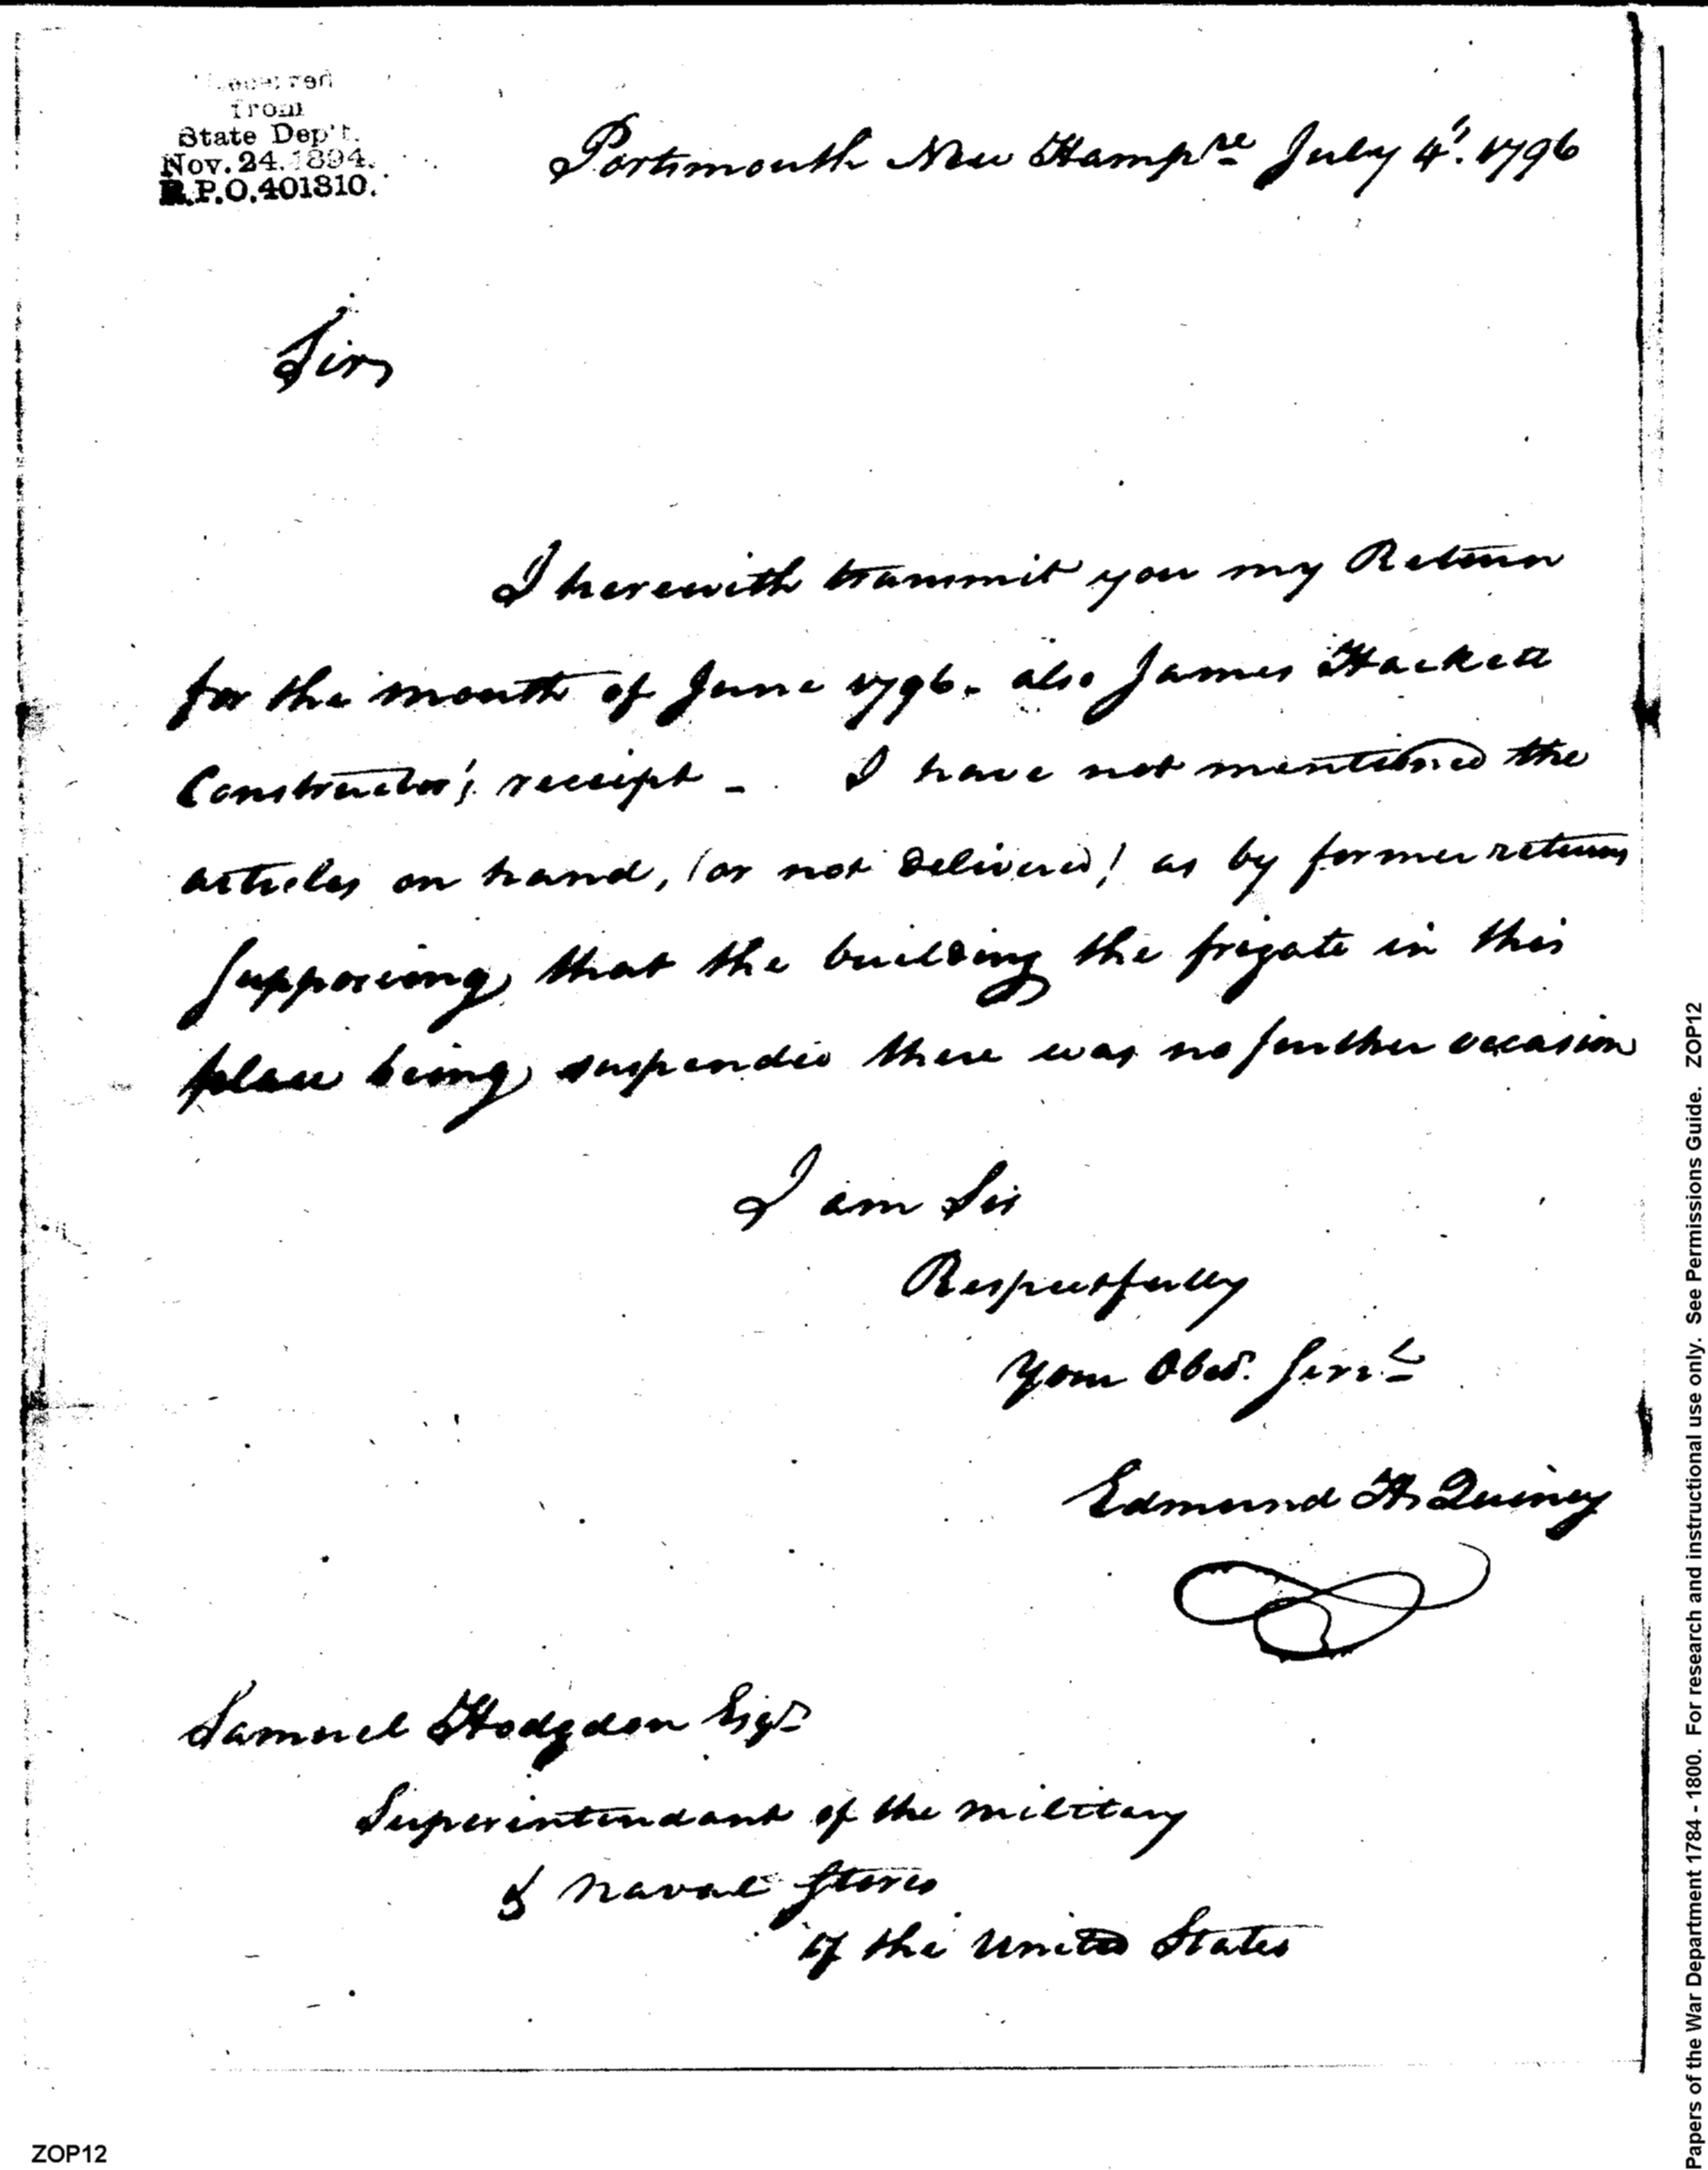 from
State Dep't.
Nov. 24. 1894.
R.P.O. 401310.
Portsmouth New Hampre July 4'. 1796
Sir,
I herewith transmit you my Return
for the month of June 1796. also James Hackett
Constructor's receipt - I have not mentioned the
articles on hand, (or not delivered) as by former returns
supposeing that the building the frigate in this
place being suspended there was no further occasion
I am Sir
Respectfully
Your Obed. Servt
Edmund H Quincy
Samuel Hodgdon Esqr
Superintendant of the military
& naval stores
of the United States
ZOP12
Papers of the War Department 1784 - 1800. For research and instructional use only. See Permissions Guide. ZOP12